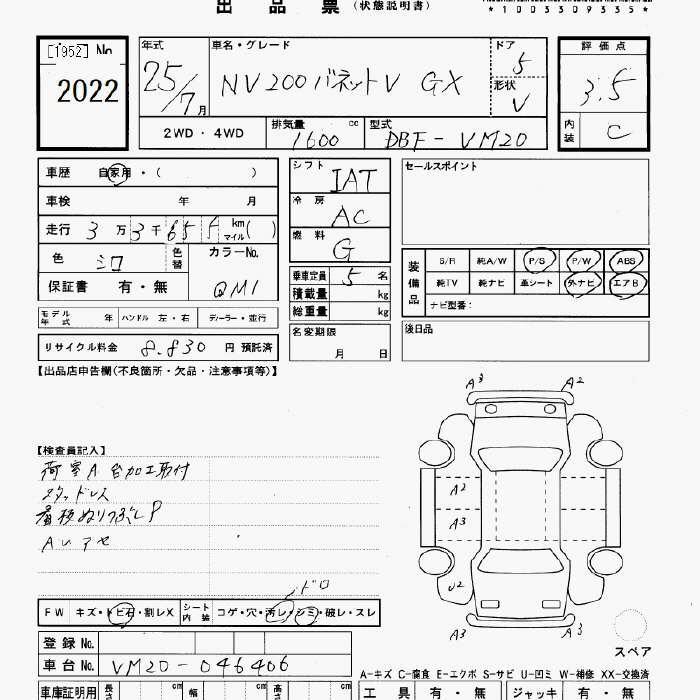 出 品 票 (状態説明書)
*1003309335*
[1952] No
2022
年式 25/7月
車名・グレード NV200バネットV GX
ドア 5
形状 V
評価点 3.5
内装 C
2WD・4WD
排気量 1600 cc
型式 DBF-VM20
車歴 自家用・( )
車検 年 月
走行 3万3千655 km マイル( )
色 シロ 色替
カラーNo. QM1
保証書 有・無
シフト IAT
冷房 AC
燃料 G
乗車定員 5 名
積載量 kg
総重量 kg
名変期限 月 日
セールスポイント
装備品 S/R 純A/W P/S P/W ABS
純TV 純ナビ 革シート 外ナビ エアB
ナビ型番:
後日品
モデル年式 年 ハンドル 左・右 ディーラー・並行
リサイクル料金 8.830 円 預託済
【出品店申告欄(不良箇所・欠品・注意事項等)】
【検査員記入】
荷室A 台加工取付
スタッドレス
P
A3 A2
A2
A3
U2
A3 A3
ドロ
FW キズ・トビ石・割レX シート内装 コゲ・穴・汚レ・シミ・破レ・スレ
スペア
登録No.
車台No. VM20-046406
A-キズ C-腐食 E-エクボ S-サビ U-凹ミ W-補修 XX-交換済
車庫証明用 長さ cm 幅 cm 高さ cm
工具 有・無 ジャッキ 有・無